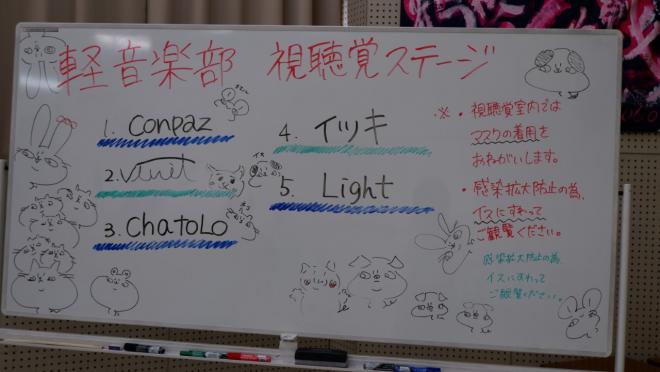 軽音楽部 視聴覚ステージ
1. Conpaz
2. vivet
3. ChatoLo
4. イツキ
5. Light
※・視聴覚室内では
マスクの着用を
おねがいします。
・感染拡大防止の為、
イスにすわって
ご観覧ください。
感染拡大防止の為、
イスにすわって
ご観覧ください。
イヌ